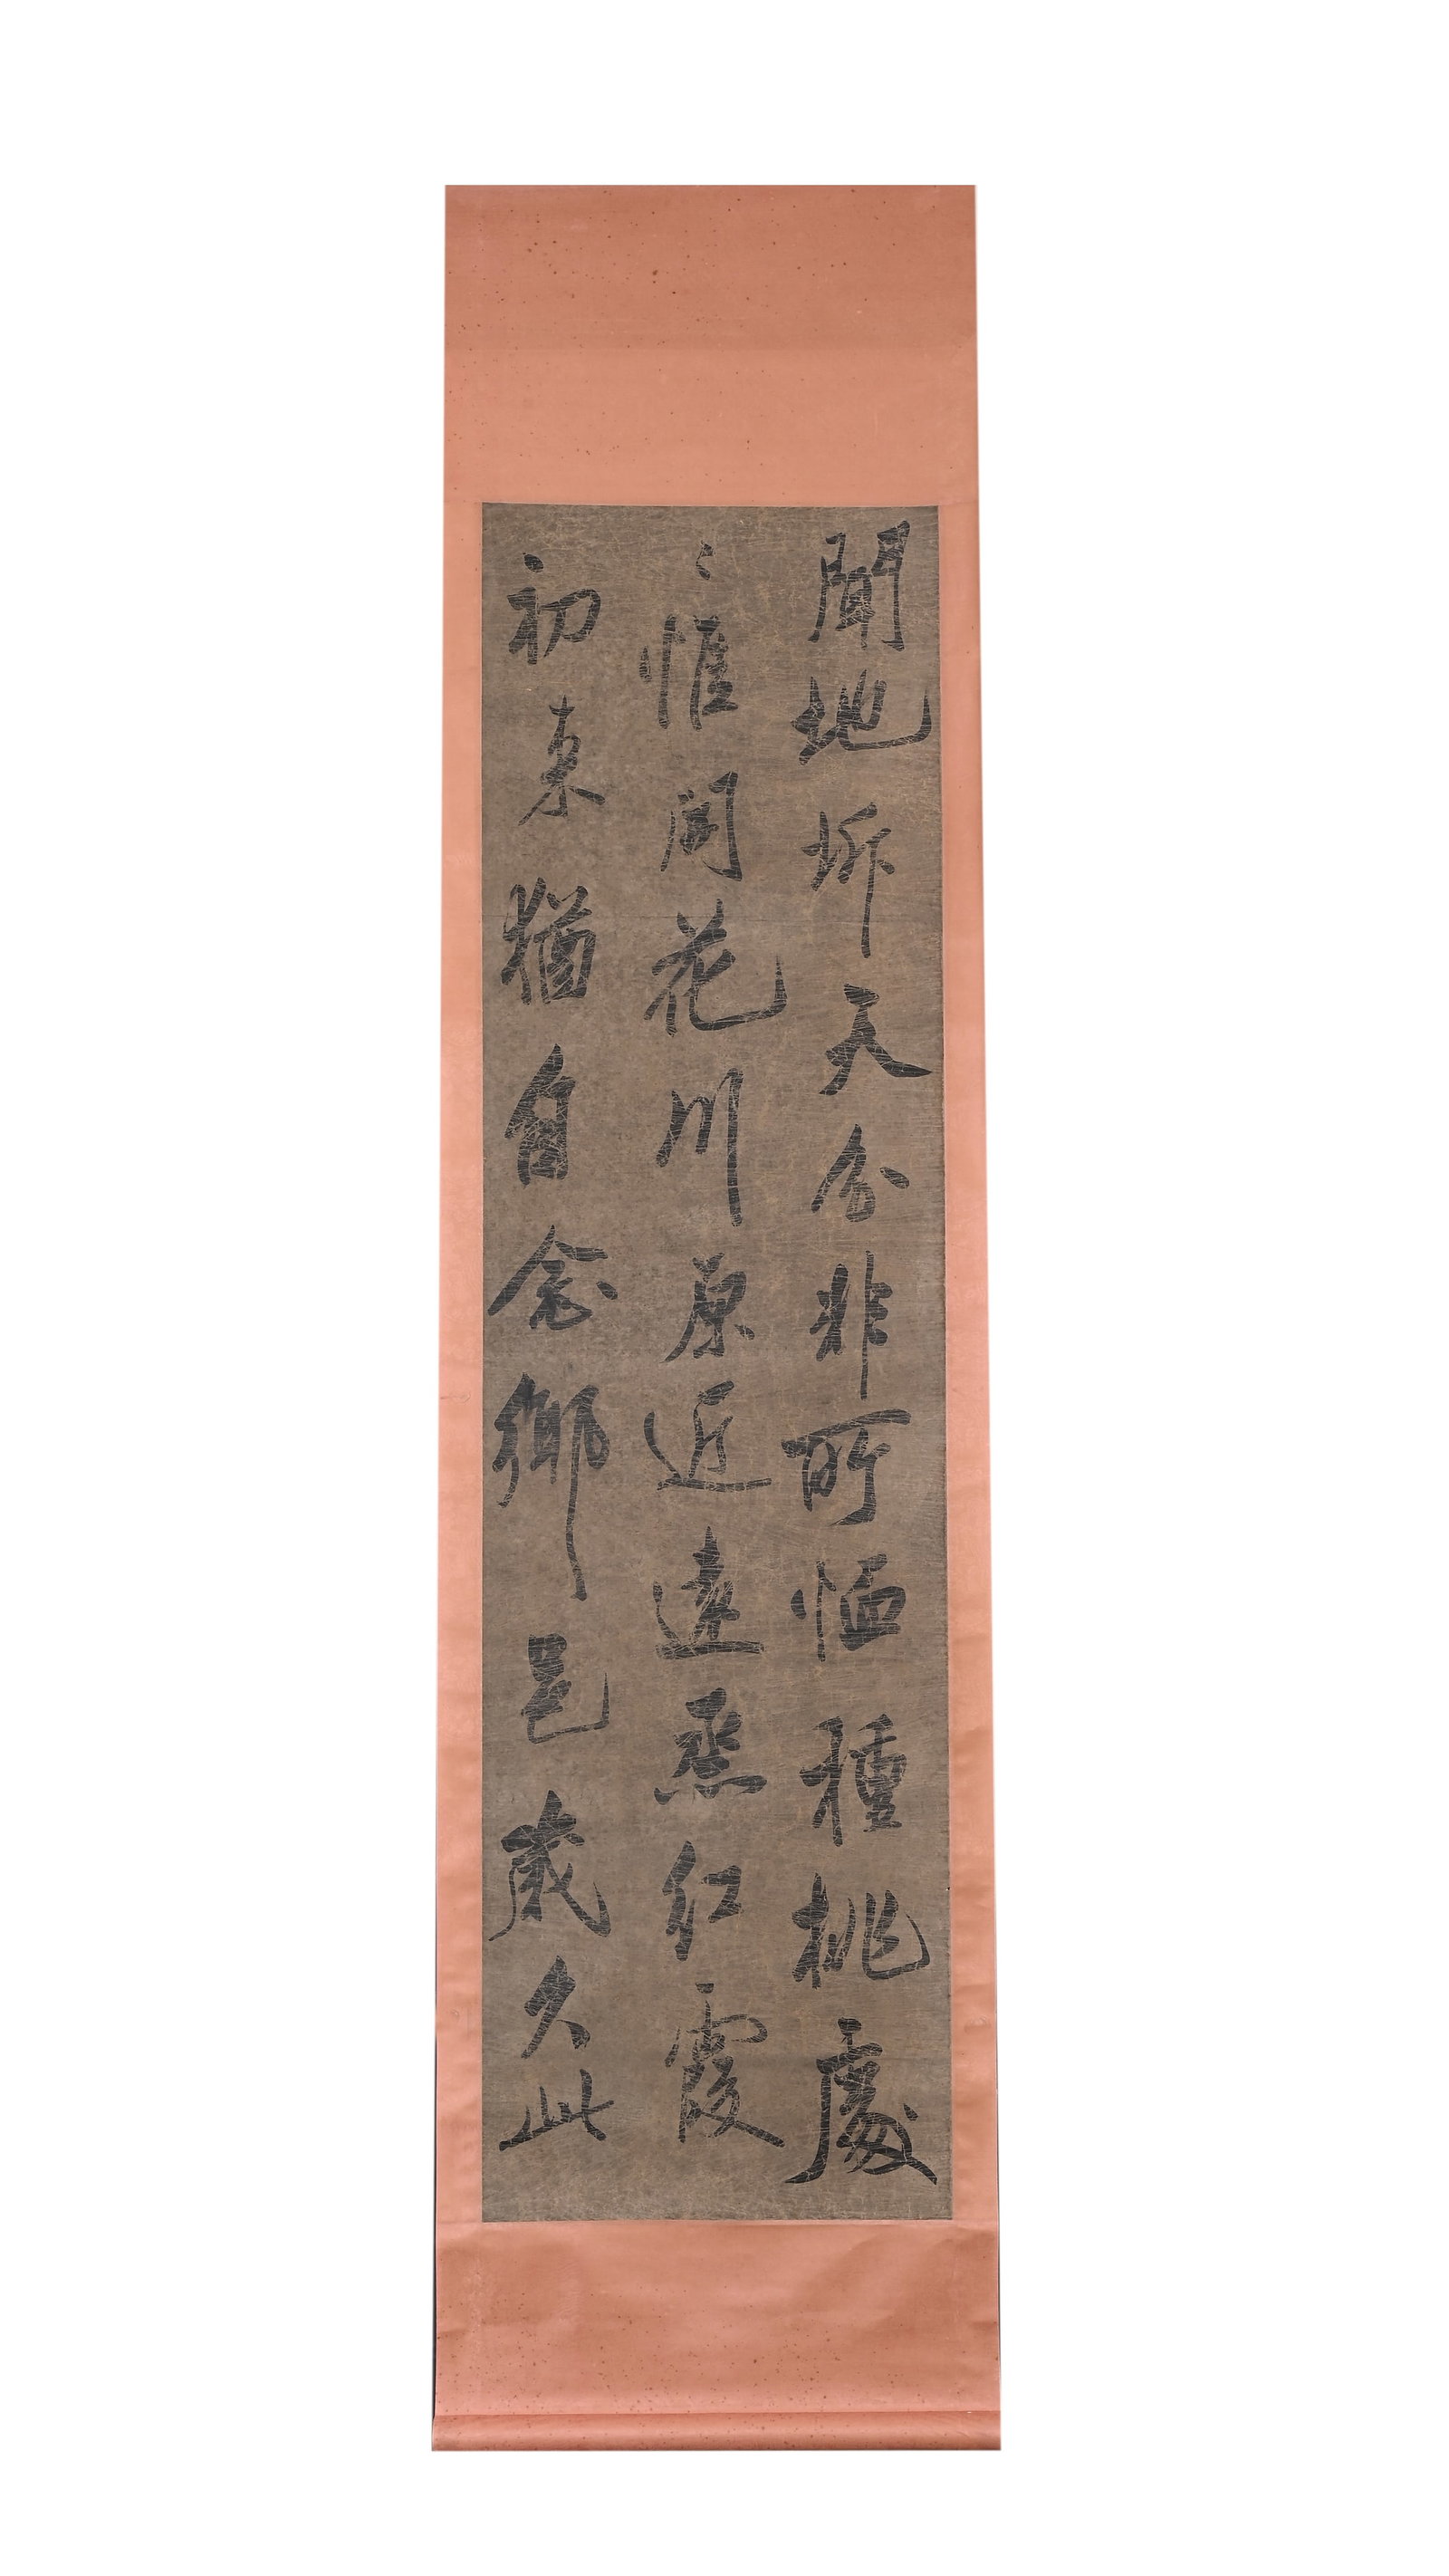 聞地坼天分非所恤種桃處
〻惟開花川原近遠烝紅霞
初来猶自念鄉邑歲久此